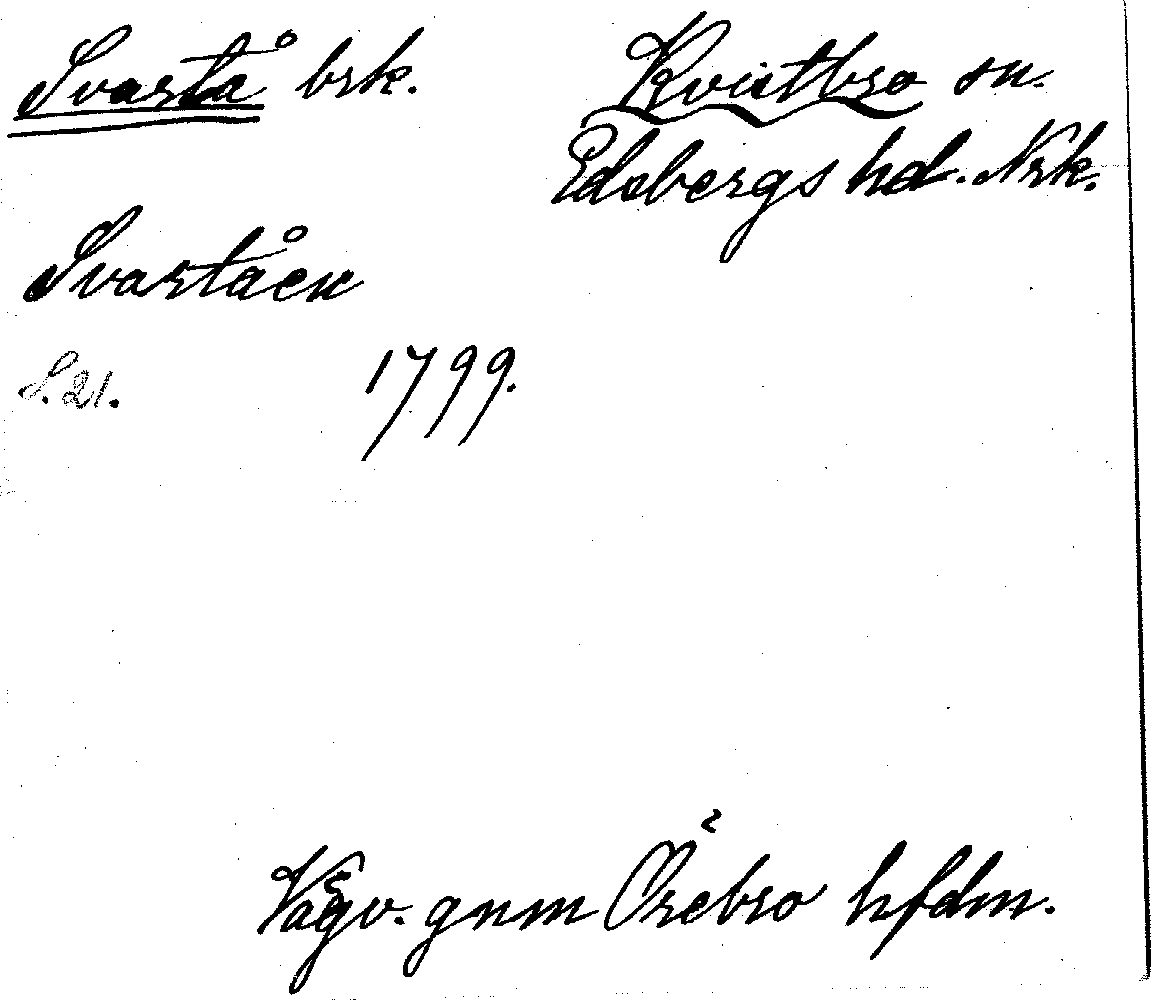 Svartå brk.
Kvistbro sn.
Edsbergs hd. Nrk.
Svartåen
S. 21.
1799.
Vägv. gnm Örebro hfdm.